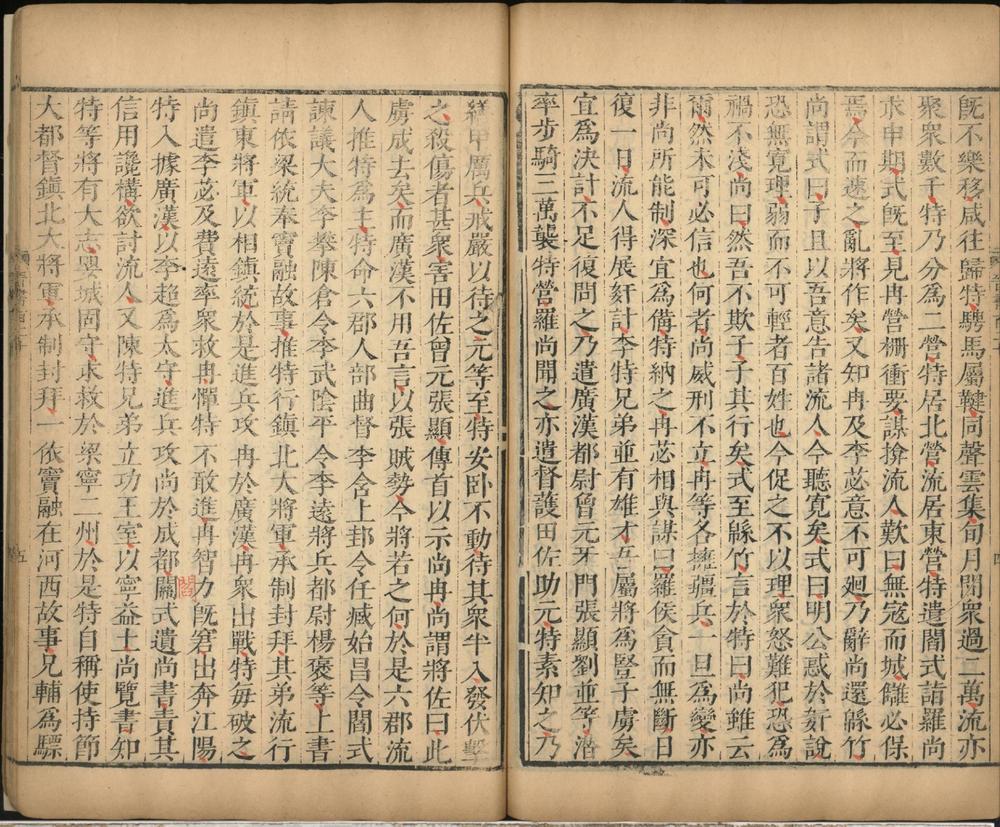 旣不樂移咸往歸特騁馬屬鞬同聲雲集旬月閒衆過二萬流亦
聚衆數千特乃分爲二營特居北營流居東營特遣閻式詣羅尚
求申期式旣至見冉營栅衝要謀揜流人歎曰無寇而城讎必保
焉今而速之亂將作矣又知冉及李苾意不可廻乃辭尚還緜竹
尚謂式曰子且以吾意告諸流人今聽寬矣式曰明公惑於姧說
恐無寬理弱而不可輕者百姓也今促之不以理衆怒難犯恐爲
禍不淺尚曰然吾不欺子子其行矣式至緜竹言於特曰尚雖云
爾然未可必信也何者尚威刑不立冉等各擁疆兵一旦爲變亦
非尚所能制深宜爲備特納之冉苾相與謀曰羅侯貪而無斷日
復一日流人得展姧計李特兄弟並有雄才吾屬將爲豎子虜矣
宜爲決計不足復問之乃遣廣漢都尉曾元牙門張顯劉並等潛
率步騎三萬襲特營羅尚聞之亦遣督護田佐助元特素知之乃
繕甲厲兵戒嚴以待之元等至特安卧不動待其衆半入發伏擊
之殺傷者甚衆害田佐曾元張顯傳首以示尚冉尚謂將佐曰此
虜成去矣而廣漢不用吾言以張賊勢今將若之何於是六郡流
人推特爲主特命六郡人部曲督李含上邽令任臧始昌令閻式
諫議大夫李攀陳倉令李武陰平令李遠將兵都尉楊褒等上書
請依梁統奉竇融故事推特行鎮北大將軍承制封拜其弟流行
鎮東將軍以相鎮統於是進兵攻冉於廣漢冉衆出戰特每破之
尚遣李苾及費遠率衆救冉憚特不敢進冉智力旣窘出奔江陽
特入據廣漢以李超爲太守進兵攻尚於成都闗式遺尚書責其
閻
信用讒構欲討流人又陳特兄弟立功王室以寧益土尚覽書知
特等將有大志嬰城固守求救於梁寧二州於是特自稱使持節
大都督鎮北大將軍承制封拜一依竇融在河西故事兄輔爲驃
五